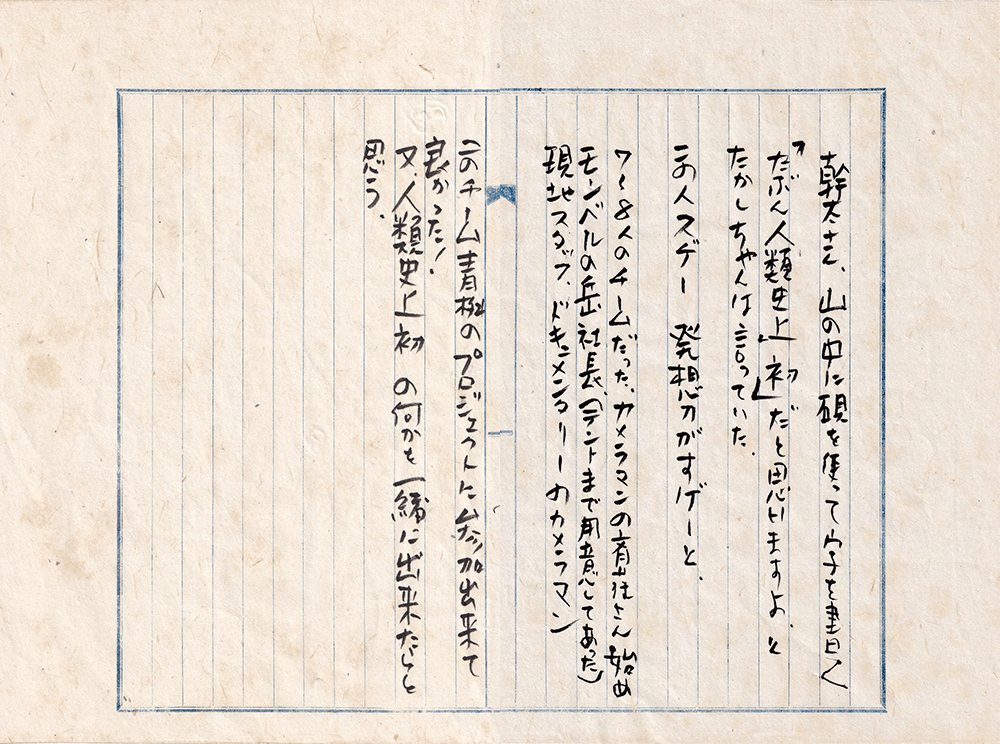 幹太さん、山の中に硯を使って字を書く
「たぶん人類史上「初」だと思いますよ、と
たかしちゃんは言っていた。
この人スゲー 発想力がすげーと、
7〜8人のチームだった、カメラマンのさん始め
モンベルの岳社長、(テントまで用意してあった)
現地スタッフ、ドキュメンタリーのカメラマン
このチーム青極のプロジェクトに参加出来て
良かった!
又、人類史上初 の何かを一緒に出来たらと
思う、